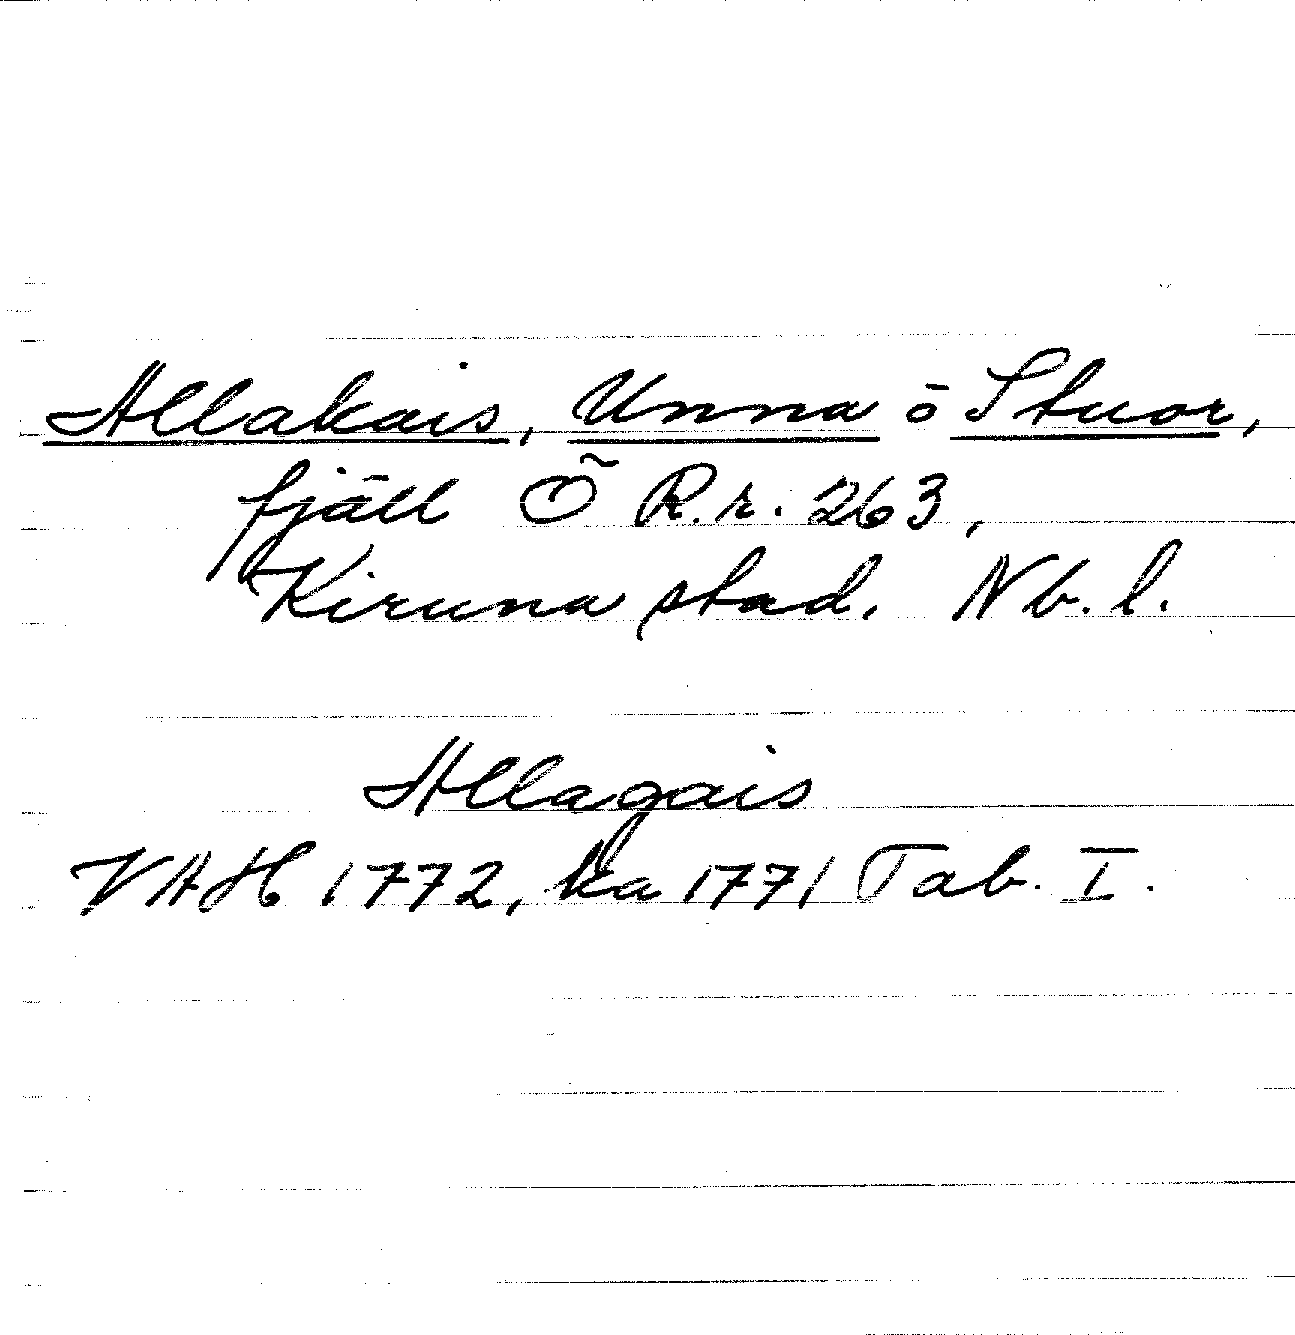 Allakais, Unna ō Stuor,
fjäll Ö R.r. 263,
Kiruna stad. Nb. l.
Allagais
VAH 1772, ka 1771 Tab. I.